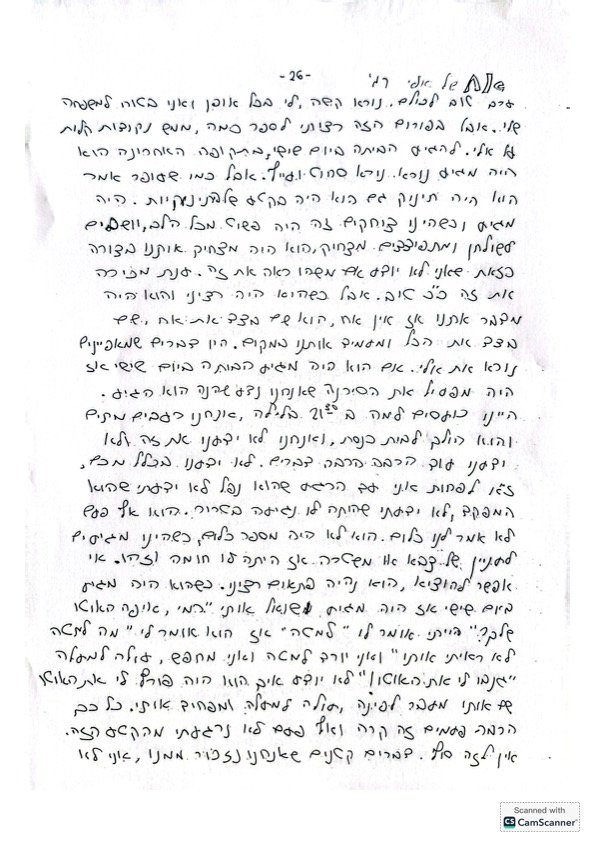 -26-
אח של אלי רמי
ערב טוב לכולם. נורא קשה, לי בכל אופן ואני בטוח למשפחה
שלי. אבל בפורום הזה רציתי לספר כמה, ממש נקודות קלות
על אלי. להגיע הביתה ביום שישי, בתקופה האחרונה הוא
היה מגיע נורא, נורא סחוט ועייף. אבל כמו שעופר אמר
הוא היה תינוק גם הוא היה בקטע של תינוקיות. היה
מגיע וכשהיינו צוחקים זה היה פשוט מכל הלב, יושבים
לשולחן ומתפוצצים מצחוק, הוא היה מצחיק אותנו בצורה
כזאת שאני לא יודע אם מישהו ראה את זה. ענת מכירה
את זה כ"כ טוב. אבל כשהוא היה רציני והוא היה
מדבר אתנו אז אין אח, הוא שם בצד את אח, שם
בצד את הכל ומעמיד אותנו במקום. היו דברים שמאפיינים
נורא את אלי. אם הוא היה מגיע הביתה ביום שישי אז
היה מפעיל את הסירנה שאנחנו נדע שהנה הוא הגיע.
היינו כועסים למה ב 21³⁰ בלילה, אנחנו רעבים מתים
והוא הולך לבית כנסת, ואנחנו לא ידענו את זה ולא
ידענו עוד הרבה הרבה דברים. לא ידענו בכלל מכם,
לפחות אני עד הרגע שהוא נפל לא ידעתי שהוא
המפקד, לא ידעתי שהיתה לו נגיעה בשחור. הוא אף פעם
לא אמר לנו כלום. הוא לא היה מספר כלום, כשהיינו מגיעים
לעניין של צבא או משטרה אז היתה לו חומה וזהו. אי
אפשר להוציא, הוא נהיה פתאום רציני. כשהוא היה מגיע
ביום שישי אז היה מגיע ושואל אותי "רמי, איפה האוטו
שלך?" הייתי אומר לו "למטה" אז הוא אומר לי "מה למטה
לא ראיתי אותו" ואני יורד למטה ואני מחפש, עולה למעלה
"גנבו לי את האוטו!" לא יודע איך הוא היה פורץ לי את האוטו
שם אותו מעבר לפינה, עולה למעלה ומפחיד אותי. כל כך
הרבה פעמים זה קרה ואף פעם לא נרגעתי מהקטע הזה.
אין לזה סוף. דברים קטנים שאנחנו נזכור ממנו, אני לא
Scanned with
CS CamScanner